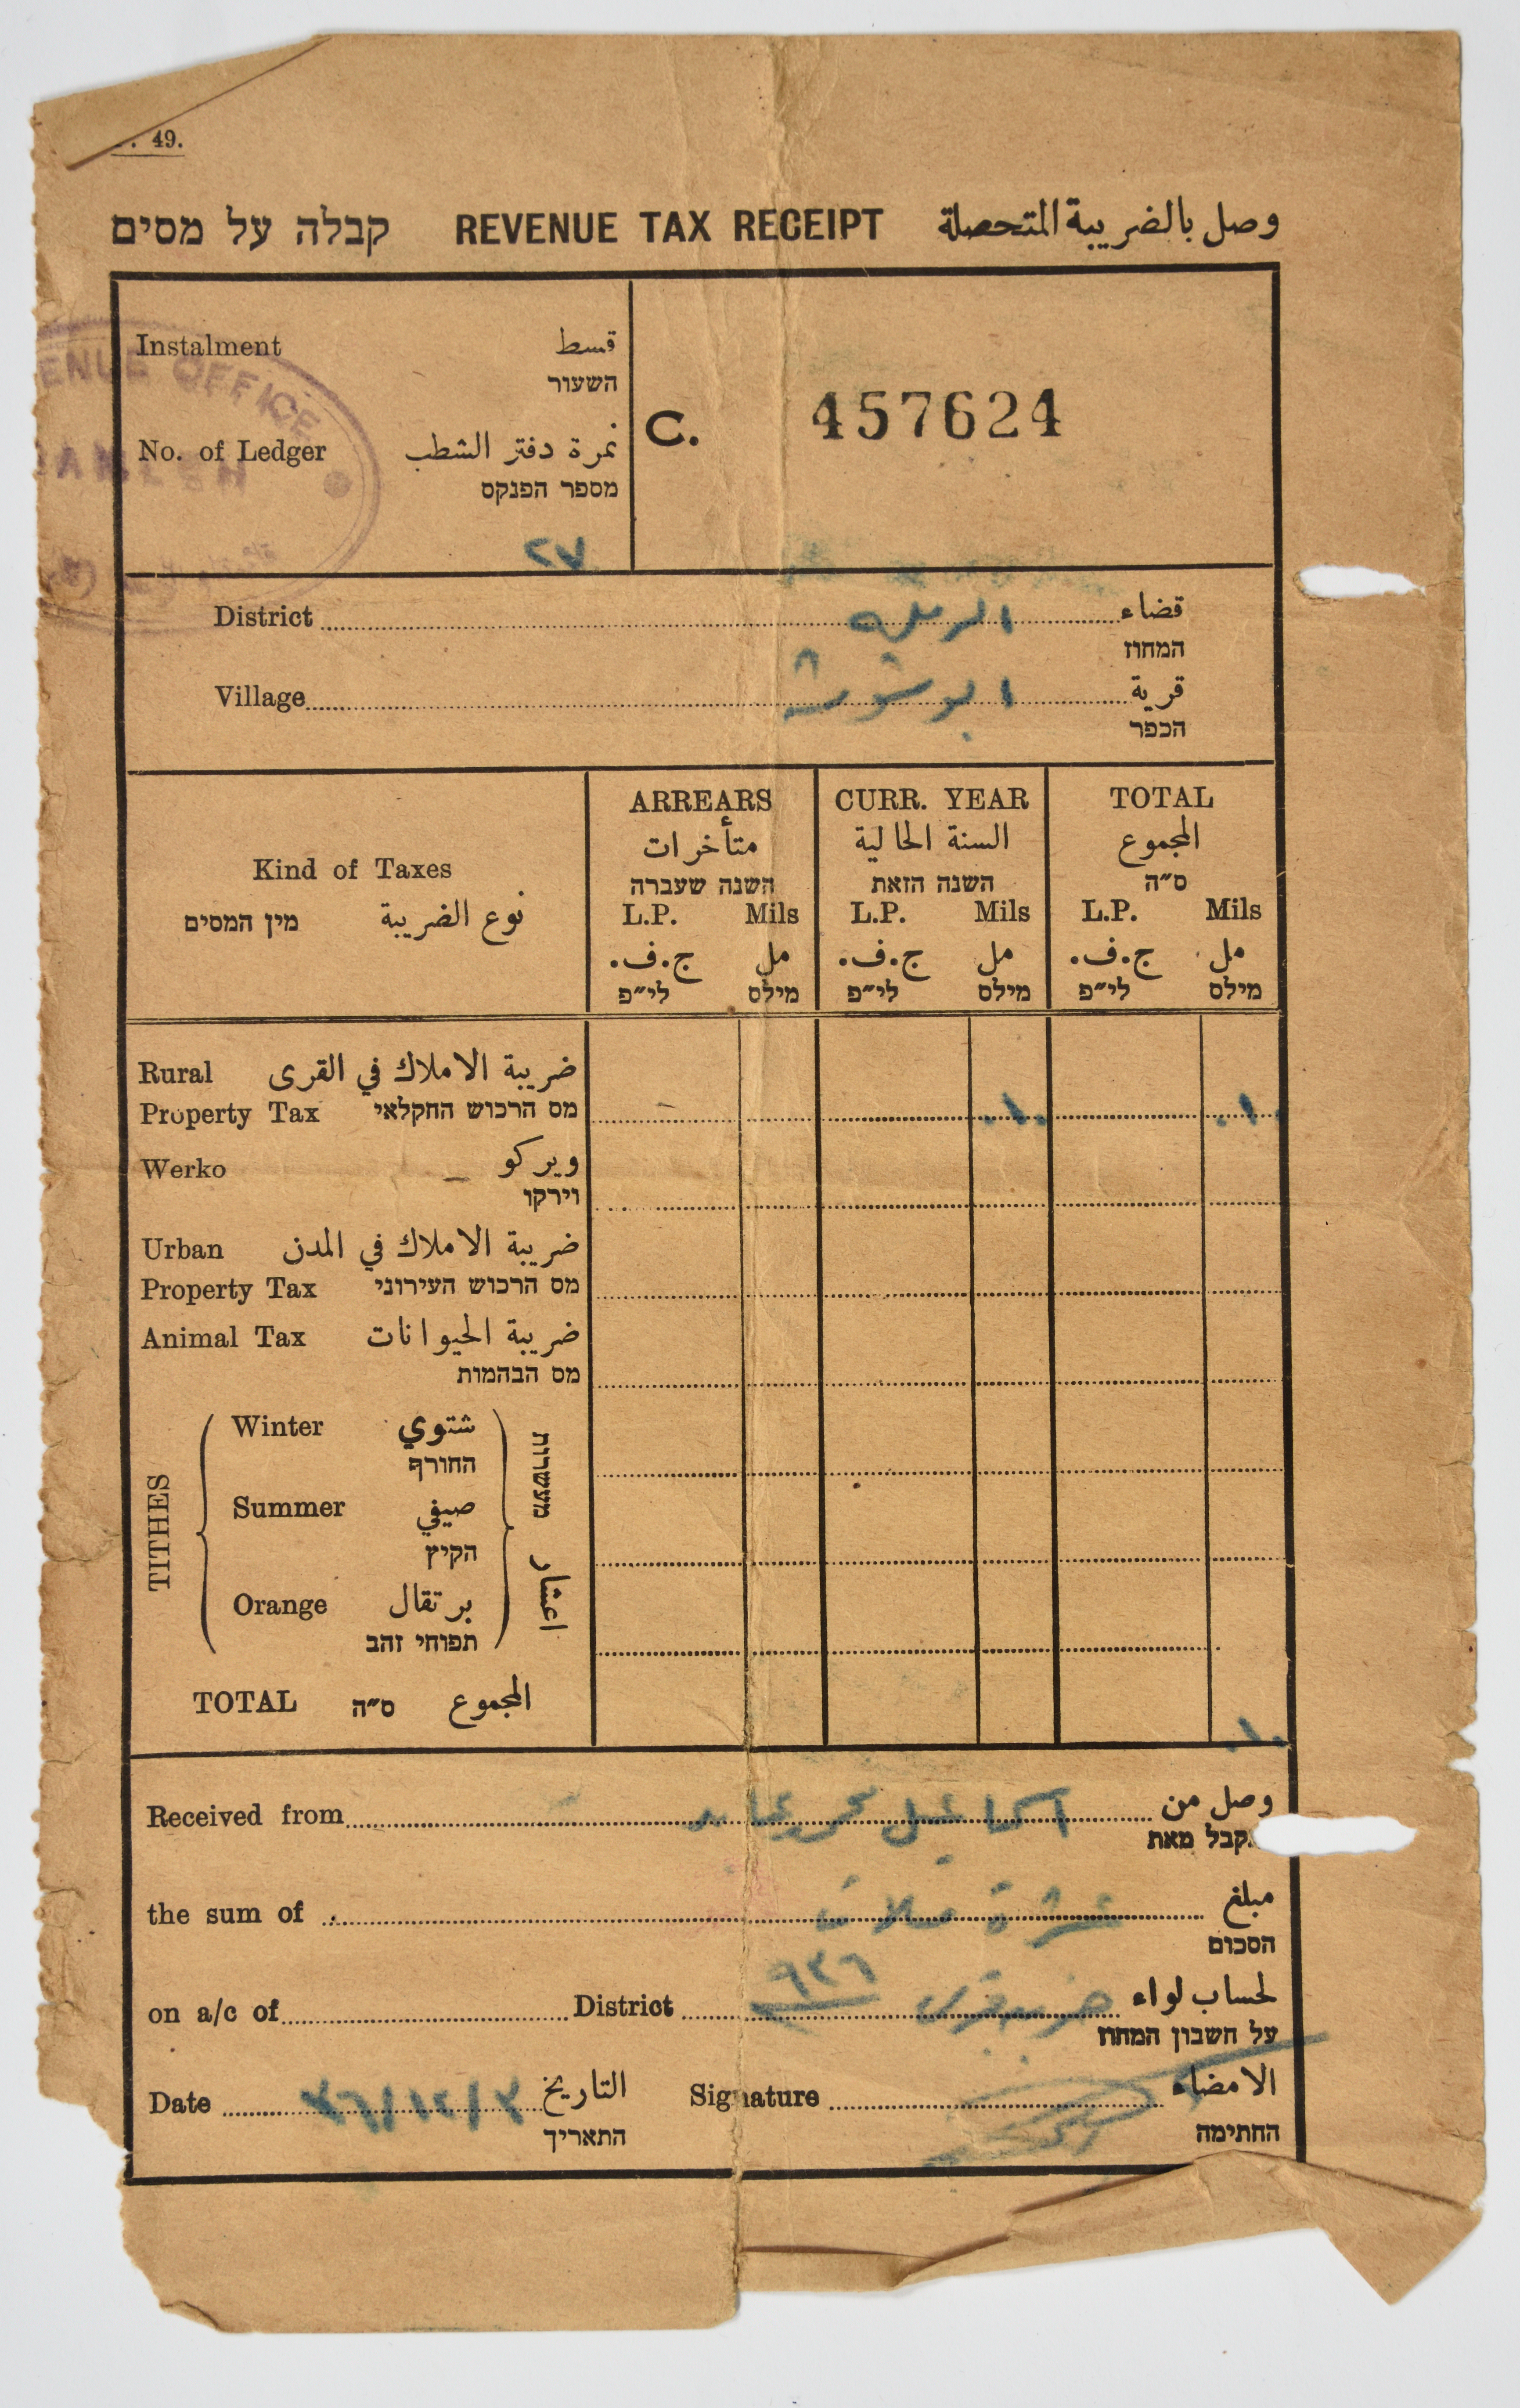 . 49.
קבלה על מסים REVENUE TAX RECEIPT وصل بالضريبة المتحصلة
Instalment قسط
השעור
ENUE OFFICE
No. of Ledger نمرة دفتر الشطب
מספר הפנקס
٢٧
C. 457624
District الرملة قضاء
המחוז
Village ابو شوشة قرية
הכפר
Kind of Taxes
מין המסים نوع الضريبة
ARREARS CURR. YEAR TOTAL
متأخرات السنة الحالية المجموع
השנה שעברה השנה הזאת ס״ה
L.P. Mils L.P. Mils L.P. Mils
ج.ف. مل ج.ف. مل ج.ف. مل
לי״פ מילס לי״פ מילס לי״פ מילס
Rural ضريبة الاملاك في القرى
Property Tax מס הרכוש החקלאי ١٠ ١٠
Werko ويركو
וירקו
Urban ضريبة الاملاك في المدن
Property Tax מס הרכוש העירוני
Animal Tax ضريبة الحيوانات
מס הבהמות
TITHES
Winter شتوي
החורף
Summer صيفي
הקיץ
Orange برتقال
תפוחי זהב
מעשרות
اعشار
TOTAL ס״ה المجموع ١٠
Received from وصل من
קבל מאת
the sum of عشرة ملات مبلغ
הסכום
on a/c of District ٩٣٦ لحساب لواء
על חשבון המחוז
Date التاريخ Signature الامضاء
התאריך החתימה